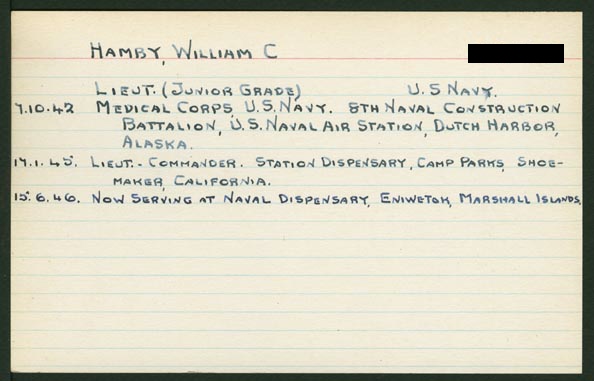 HAMBY, WILLIAM C
LIEUT. (JUNIOR GRADE) U.S NAVY.
7.10.42 MEDICAL CORPS, U.S. NAVY. 8TH NAVAL CONSTRUCTION
BATTALION, U.S. NAVAL AIR STATION, DUTCH HARBOR,
ALASKA.
17.1.45. LIEUT.- COMMANDER. STATION DISPENSARY, CAMP PARKS, SHOE-
MAKER, CALIFORNIA.
15.6.46. NOW SERVING AT NAVAL DISPENSARY, ENIWETOK, MARSHALL ISLANDS.